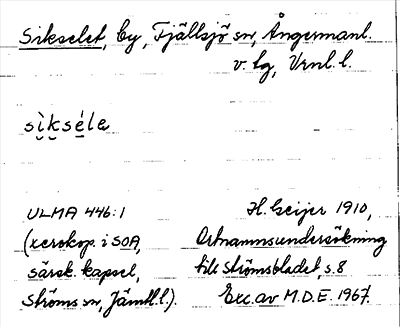 Sikselet, by, Fjällsjö sn, Ångermanl.
v. lg, Vrnl. l.
sìkséle
ULMA 446:1
(xerokop. i SOA,
särsk. kapsel,
Ströms sn, Jämtl.l.).
H. Geijer 1910,
Ortnamnsundersökning
till Strömsbladet, s. 8
Exc. av M.D.E. 1967.